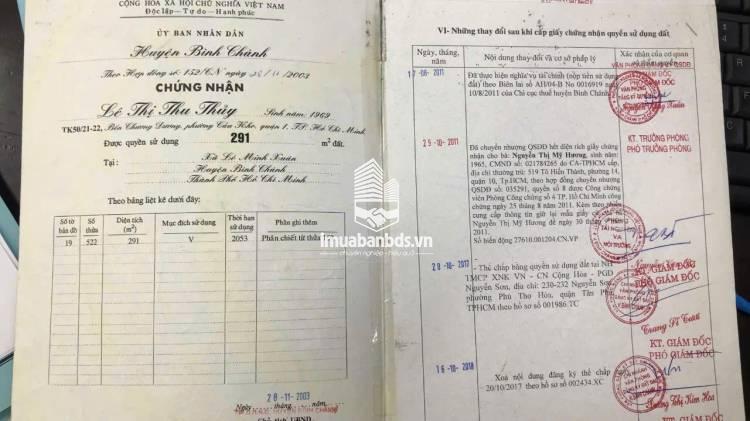 CỘNG HÒA XÃ HỘI CHỦ NGHĨA VIỆT NAM
Độc lập - Tự do - Hạnh phúc
ỦY BAN NHÂN DÂN
Huyện Bình Chánh
Theo Hợp đồng số: 152/CN ngày 2003
CHỨNG NHẬN
Lê Thị Thu Thủy Sinh năm 1969
TK50/21-22, Bến Chương Dương, phường Cầu Kho, quận 1, TP. Hồ Chí Minh
Được quyền sử dụng 291 m² đất.
Tại: Xã Lê Minh Xuân
Huyện Bình Chánh
Thành Phố Hồ Chí Minh
Theo bảng liệt kê dưới đây:
Số tờ bản đồ Số thửa Diện tích (m²) Mục đích sử dụng Thời hạn sử dụng Phần ghi thêm
19 522 291 V 2053 Phân chiết từ thửa
28-11-2003
ngày tháng năm
Chủ tịch UBND
lmuabanbds.vn
chuyên nghiệp - hiệu quả
VI- Những thay đổi sau khi cấp giấy chứng nhận quyền sử dụng đất
Ngày, tháng, năm Nội dung thay đổi và cơ sở pháp lý Xác nhận của cơ quan có thẩm quyền
17-08-2011
Đã thực hiện nghĩa vụ tài chính (nộp tiền sử dụng
đất) theo Biên lai số AH/04-B No 0016919 ngày
10/8/2011 của Chi cục thuế huyện Bình Chánh.
29-10-2011
Đã chuyển nhượng QSDĐ hết diện tích giấy chứng
nhận cho bà: Nguyễn Thị Mỹ Hương, sinh năm:
1965, CMND số: 021784265 do CA-TPHCM cấp,
địa chỉ thường trú: 519 Tô Hiến Thành, phường 14,
quận 10, Tp.HCM, theo hợp đồng chuyển nhượng
QSDĐ số: 035291, quyển số 8 được Công chứng
viên Phòng Công chứng số 4 TP. Hồ Chí Minh công
chứng ngày 25 tháng 8 năm 2011. Kèm theo phiếu
cung cấp thông tin thửa đất
2011.
Số biến động 27610.001204.CN.VP
KT. TRƯỞNG PHÒNG
PHÓ TRƯỞNG PHÒNG
PHÒNG TÀI NGUYÊN VÀ MÔI TRƯỜNG
20-10-2017
- Thế chấp bằng quyền sử dụng đất tại NH
TMCP XNK VN - CN Cộng Hòa - PGD
Nguyễn Sơn, địa chỉ: 230-232 Nguyễn Sơn,
phường Phú Thọ Hòa, quận Tân Phú,
TPHCM theo hồ sơ số 001986.TC
KT. GIÁM ĐỐC
PHÓ GIÁM ĐỐC
16-10-2018
Xoá nội dung đăng ký thế chấp
20/10/2017 theo hồ sơ số 002434.XC
KT. GIÁM ĐỐC
PHÓ GIÁM ĐỐC
Trương Thị Kim Hoa